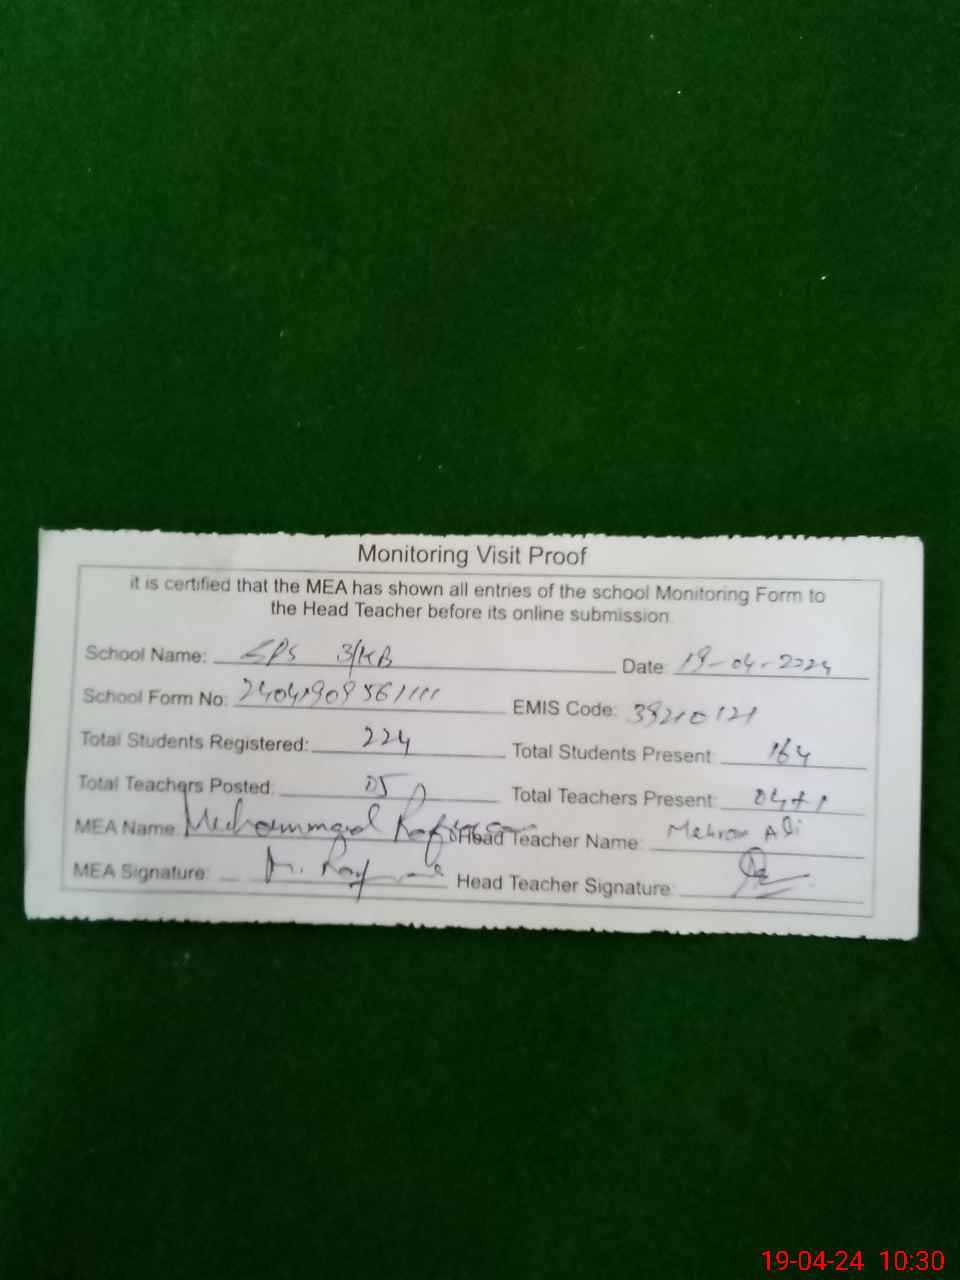 Monitoring Visit Proof
it is certified that the MEA has shown all entries of the school Monitoring Form to
the Head Teacher before its online submission.
School Name: GPS 3/KB Date: 19-04-2024
School Form No: EMIS Code: 39210121
Total Students Registered: 224 Total Students Present: 164
Total Teachers Posted: 05 Total Teachers Present: 04+1
MEA Name: Muhammad Head Teacher Name: Mehroz Ali
MEA Signature: Head Teacher Signature:
19-04-24 10:30